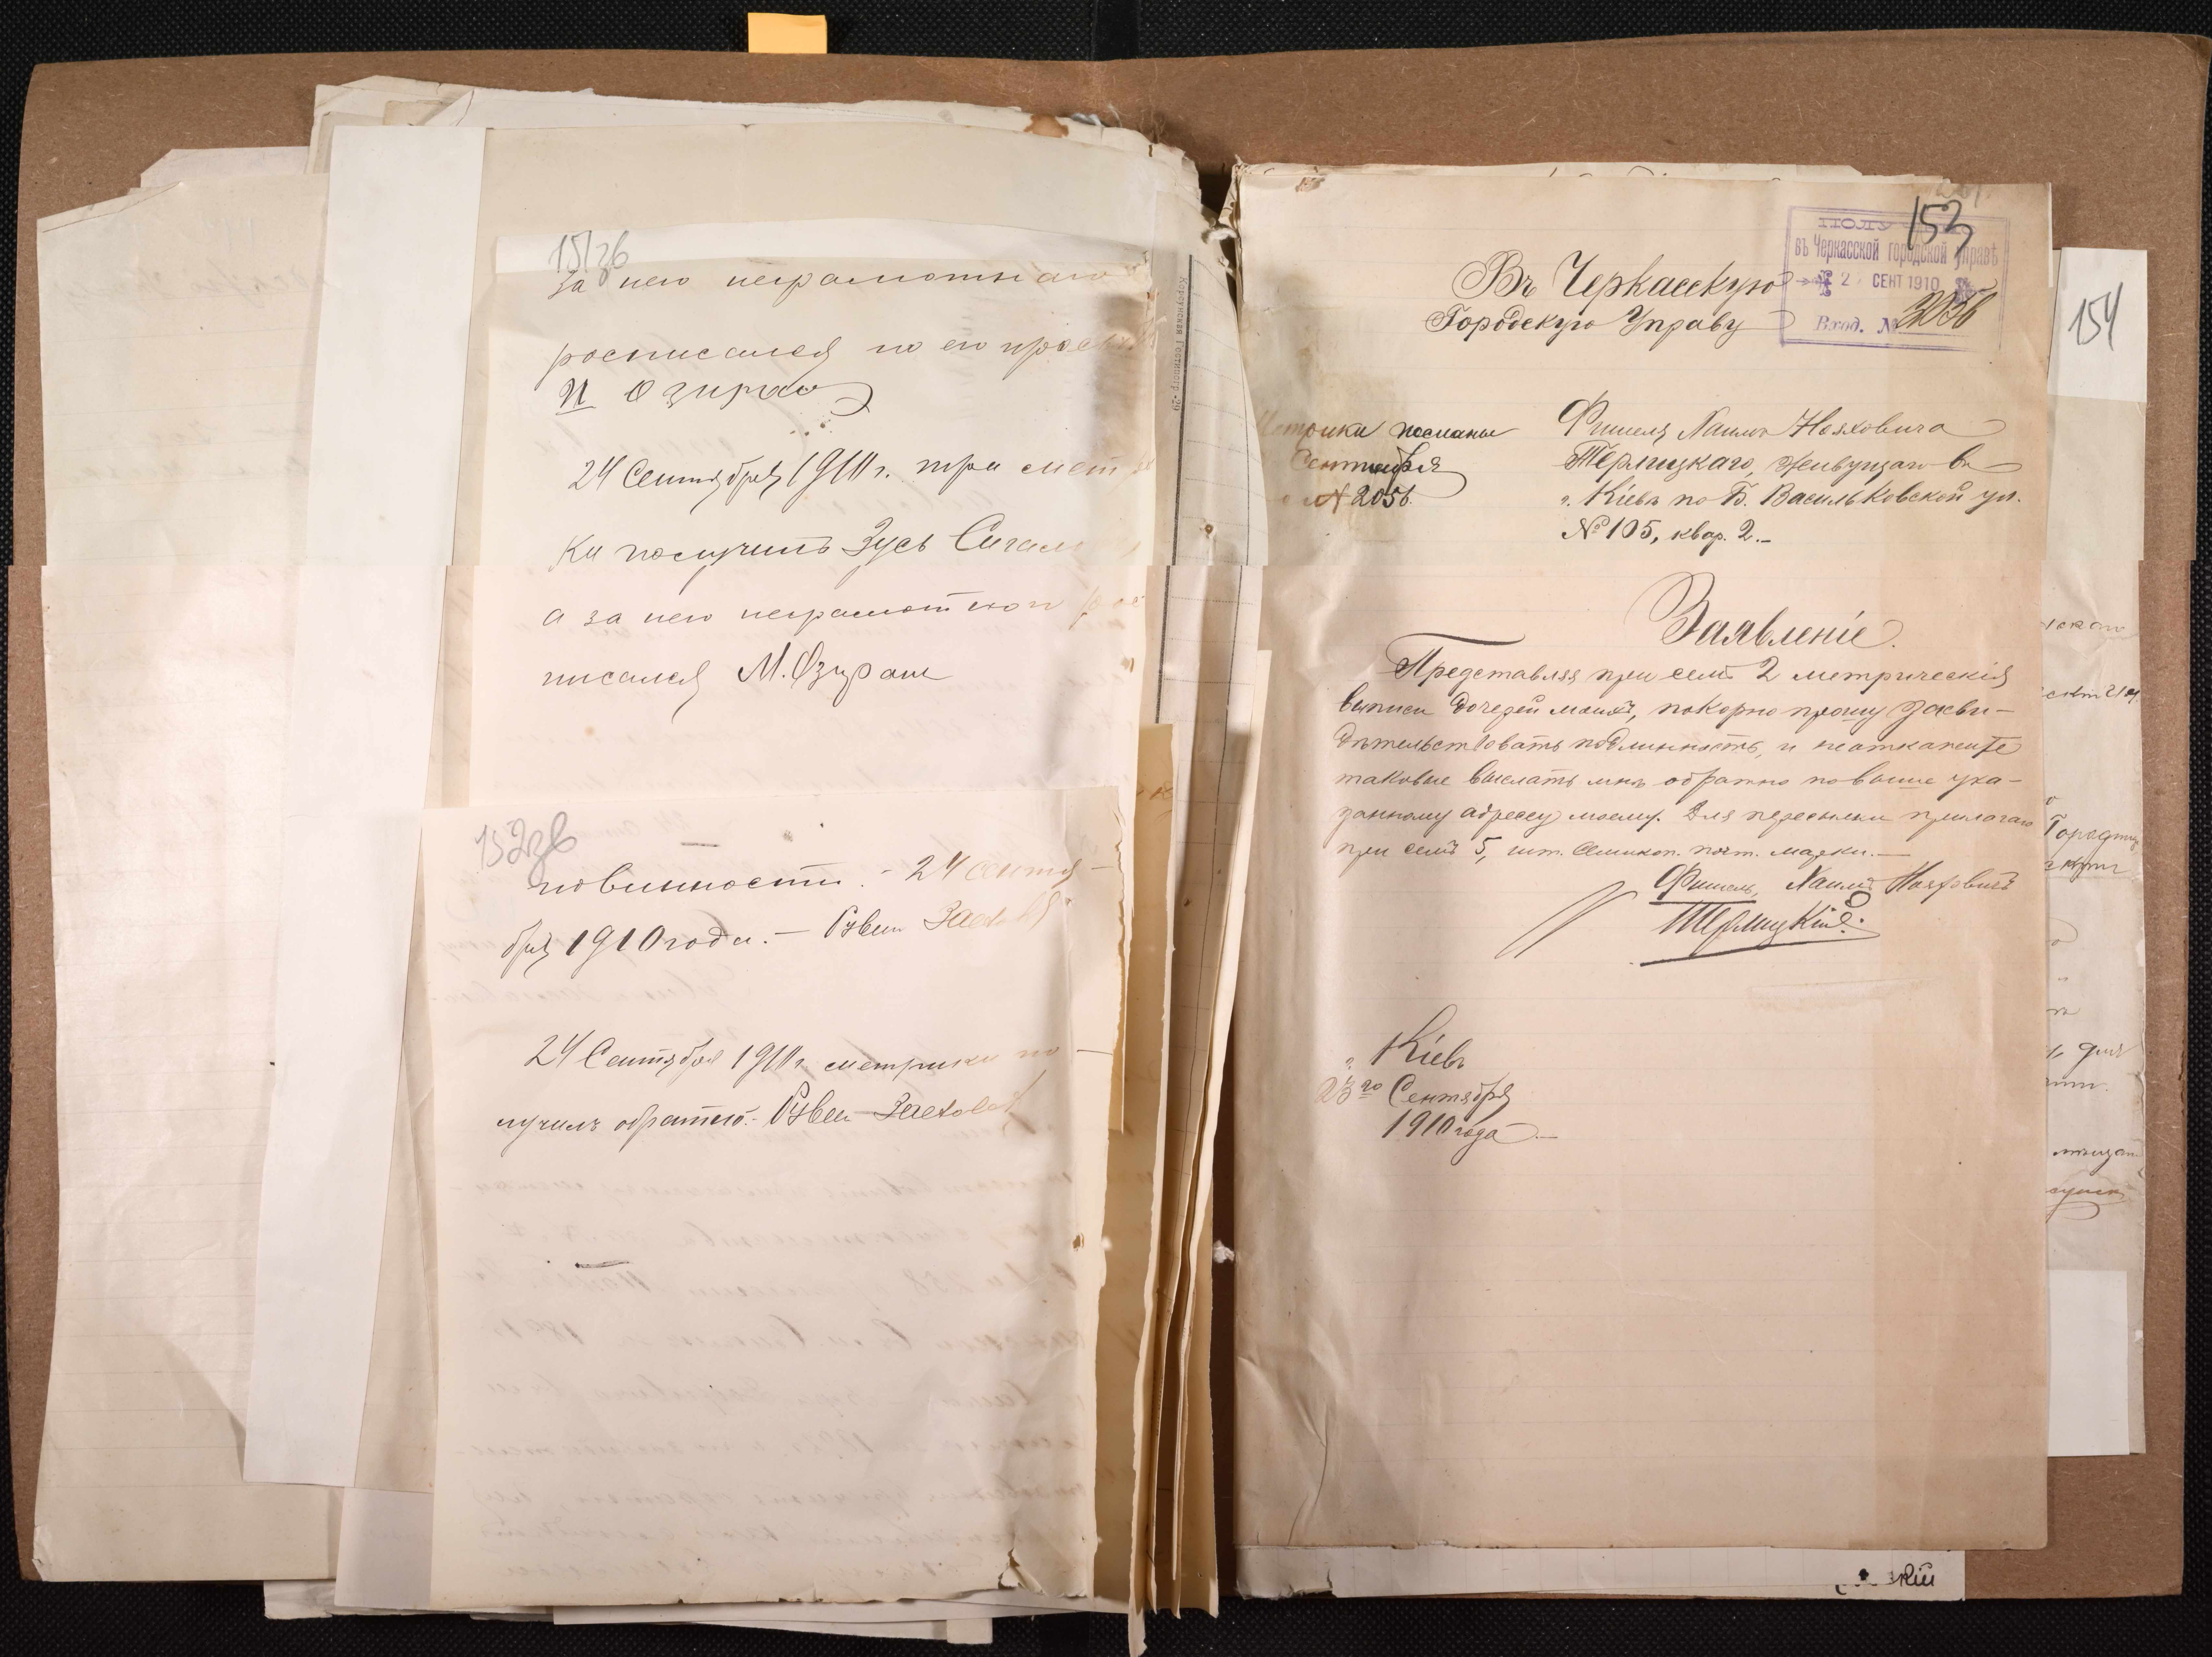 151зв
за него неграмотнаго
росписался по его прось
М Озирао
24 Сентября 1910 г. три мет
ки получилъ Зусь Сигал
а за него неграмотной рос
писался М. Озиран
152зв
повинности. - 24 сентя-
бря 1910 года. - Рувин
24 Сентября 1910 г. метрики по-
лучилъ обратно. Рувин
153
въ Черкасской городской управѣ
2 СЕНТ 1910
Вход. №
Въ Черкасскую
Городскую Управу
Метрики посланы
Сентября
№ 2056.
Фишеля Хаима Нояховича
Терлицкаго, живущаго въ
г. Кіевѣ по Б. Васильковской ул.
№ 105, квар. 2.-
Заявленіе.
Представляя при семъ 2 метрическія
выписи дочерей моихъ, покорно прошу засви-
дѣтельствовать подлинность, и неоткажите
таковые выслать мнѣ обратно повыше ука-
занному адресу моему. Для пересылки прилагаю
при семъ 5, шт. семикоп. почт. марки.-
Фишель, Хаимъ Нояховичъ
Терлицкій.
г. Кіевъ
23го Сентября
1910 года
154